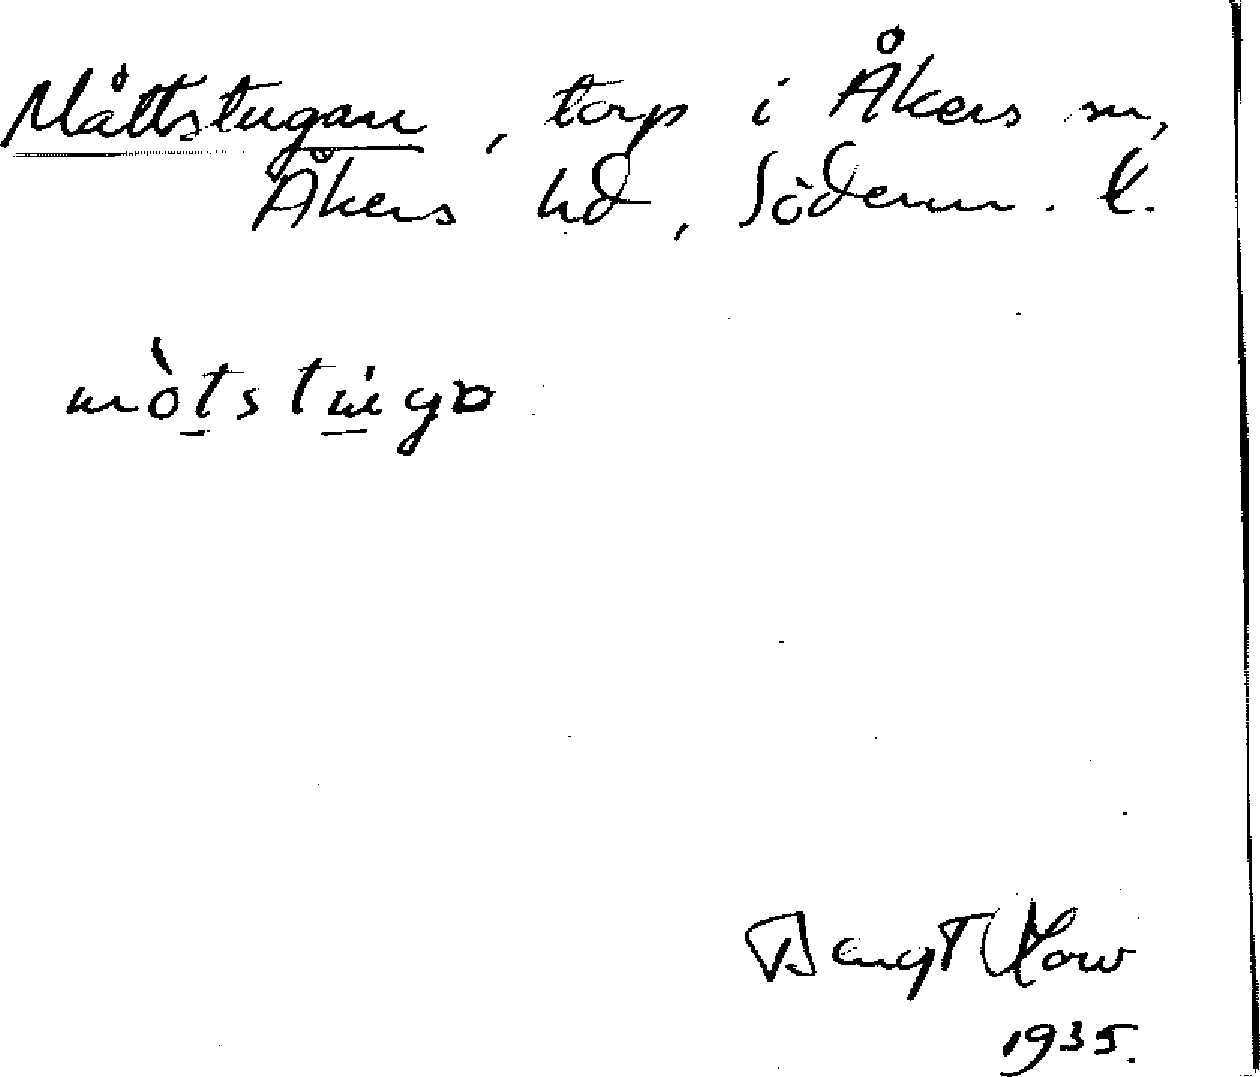 Måttstugan, torp i Åkers sn,
Åkers hd, Söderm. l.
mòtstu̇gɷ
Bengt
1935.